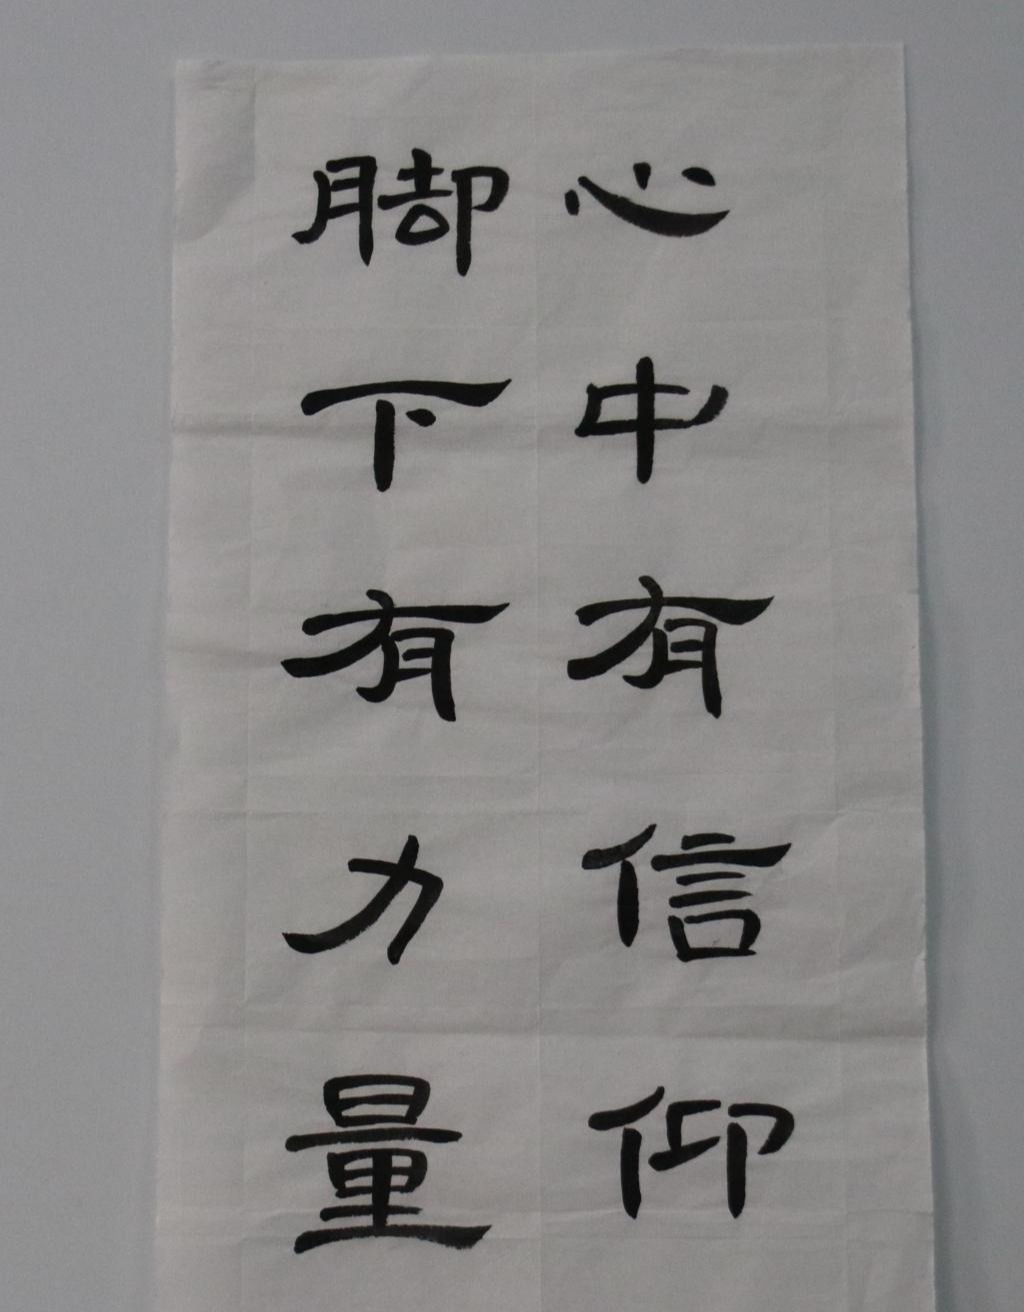 心中有信仰
脚下有力量